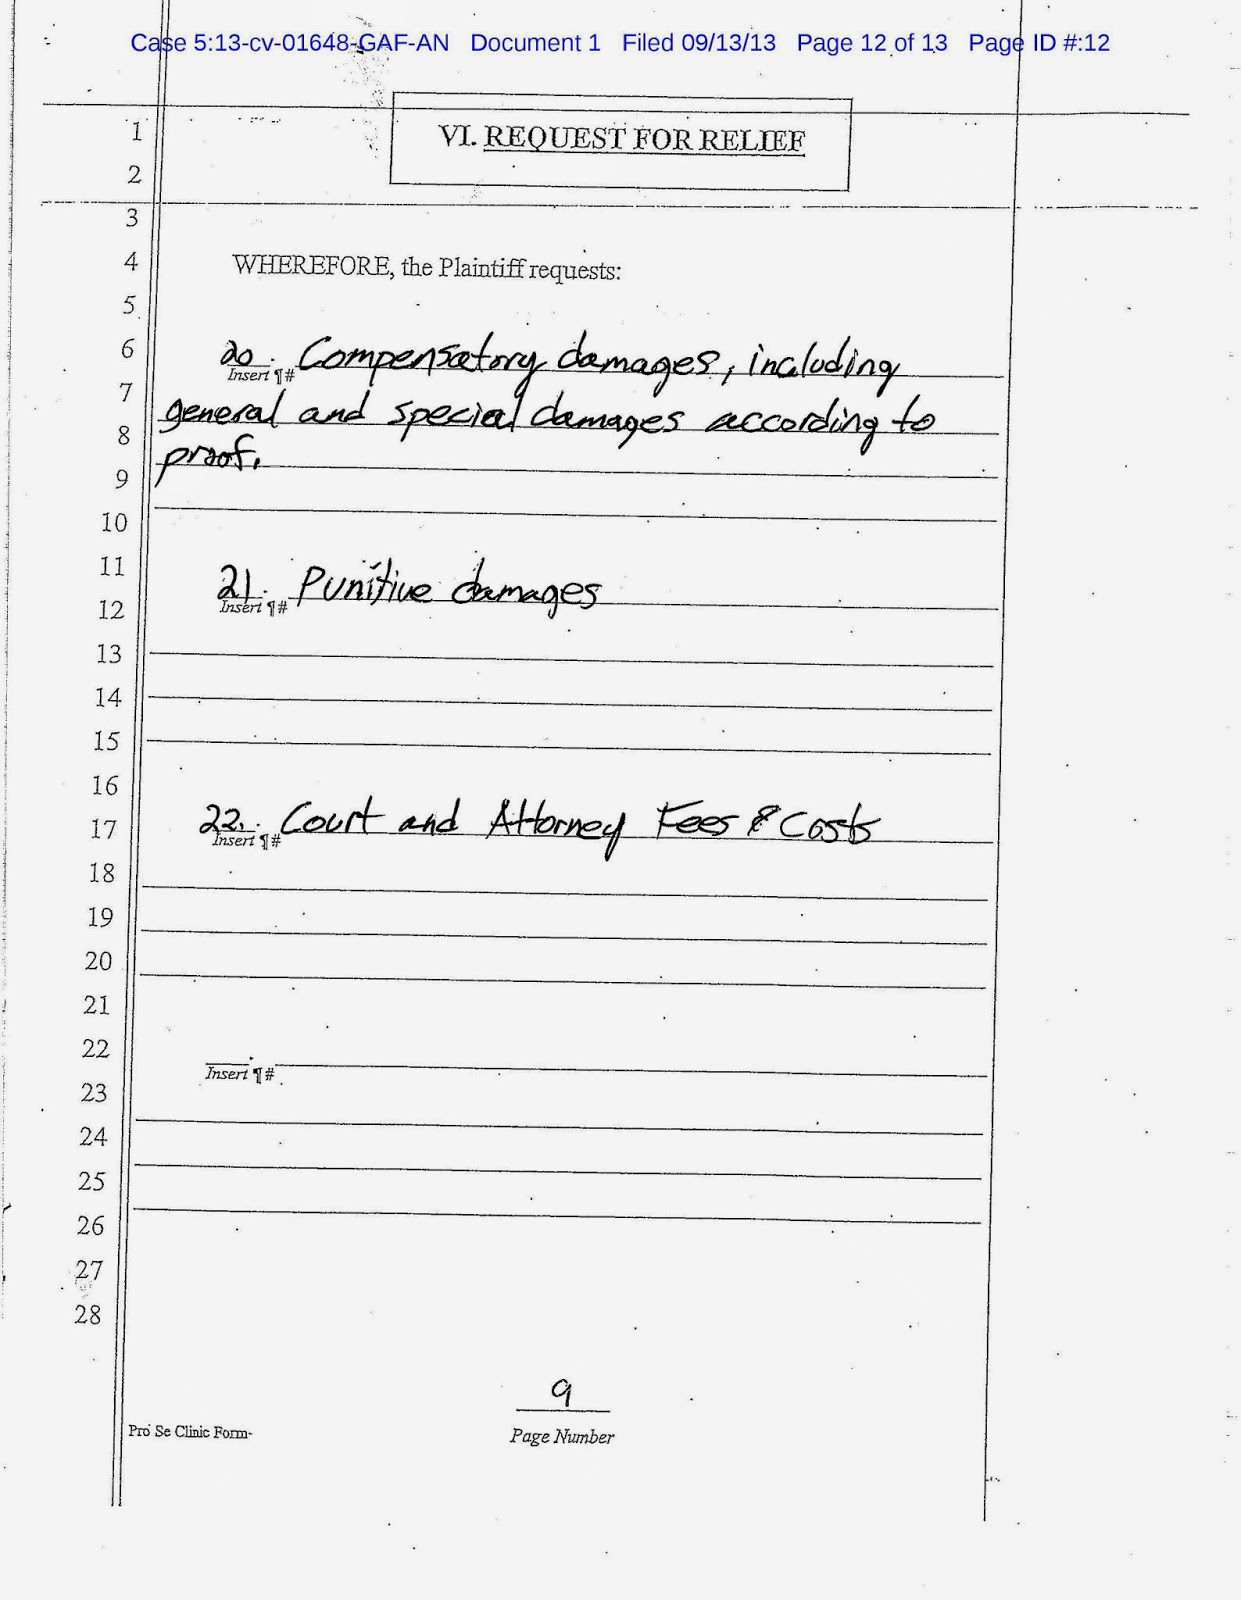 Case 5:13-cv-01648-GAF-AN Document 1 Filed 09/13/13 Page 12 of 13 Page ID #:12
1
VI. REQUEST FOR RELIEF
2
3
4 WHEREFORE, the Plaintiff requests:
5
6 20. Compensatory damages, including
Insert ¶#
7 general and special damages according to
8 proof.
9
10
11 21. Punitive damages
Insert ¶#
12
13
14
15
16
17 22. Court and Attorney Fees & Costs
Insert ¶#
18
19
20
21
22
Insert ¶#
23
24
25
26
27
28
9
Pro Se Clinic Form- Page Number